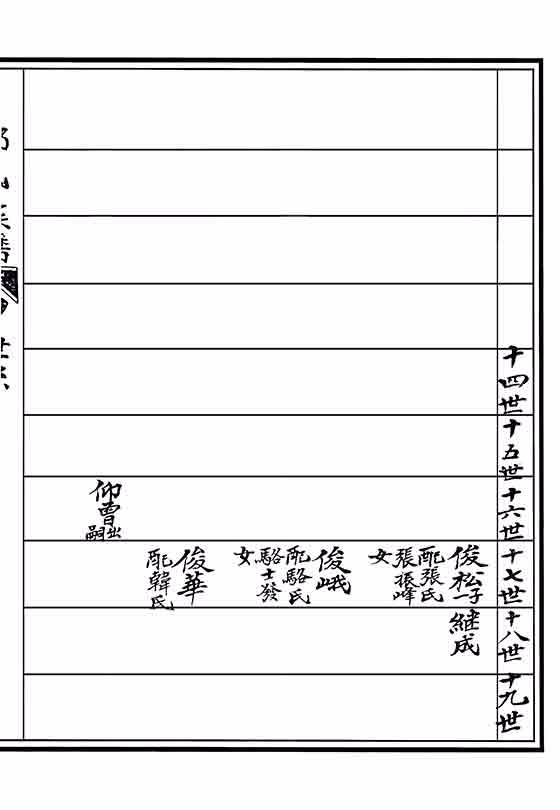 十四世
十五世
十六世
十七世
十八世
十九世
俊松
一子
配張氏
張振峰
女
繼成
俊峨
配駱氏
駱士發
女
俊華
配韓氏
仰曾
出嗣
世系